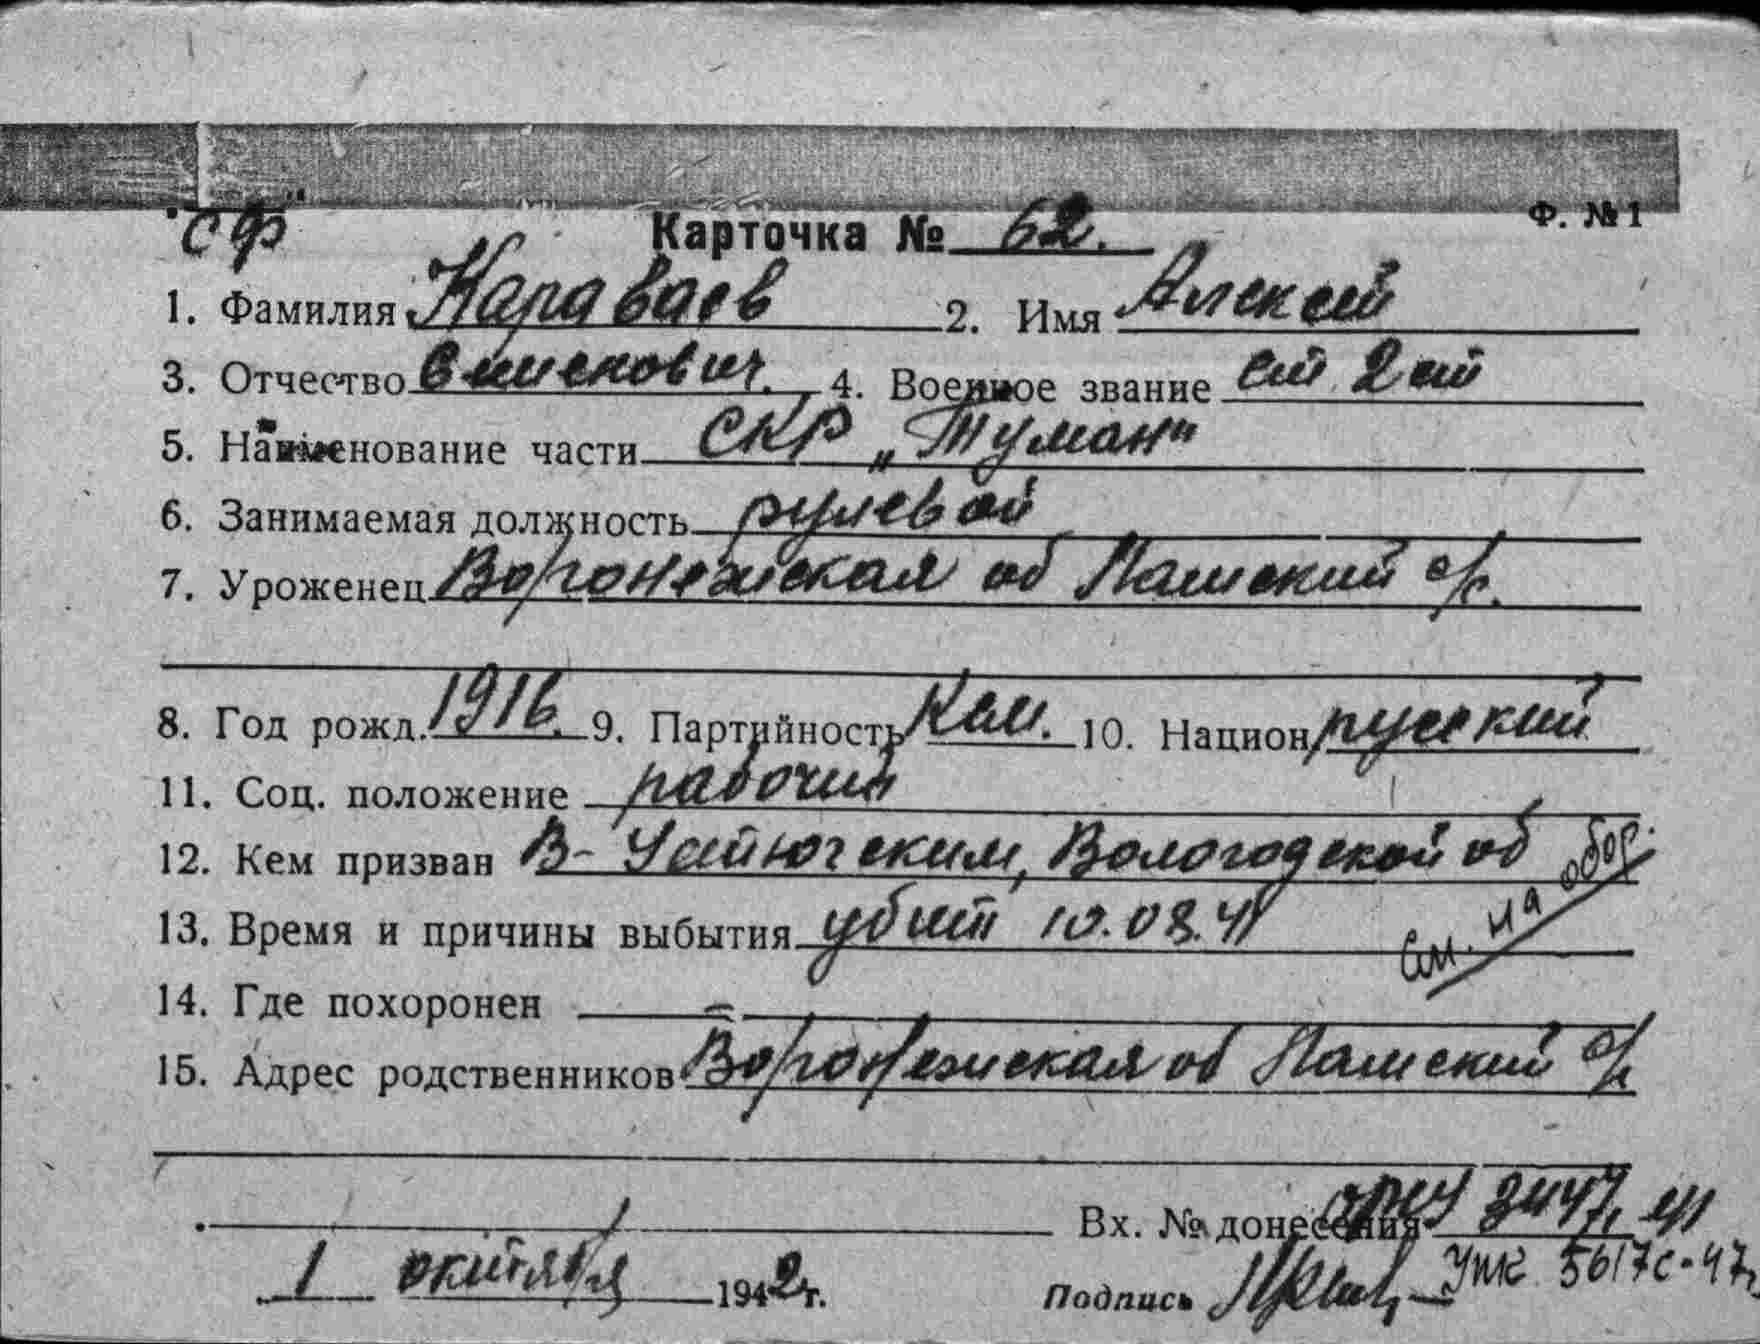 "СФ"
Карточка № 62.
Ф. №1
1. Фамилия Караваев 2. Имя Алексей
3. Отчество 4. Военное звание ст 2 ст
5. Наименование части СКР „Туман"
6. Занимаемая должность рулевой
7. Уроженец Воронежская об
8. Год рожд. 1916. 9. Партийность 10. Национ русский
11. Соц. положение рабочий
12. Кем призван В-Устюгским, Вологодской об
13. Время и причины выбытия убит 10.08.41
См. на обор.
14. Где похоронен —
15. Адрес родственников Воронежская об
Вх. № донесения
1 октября 1942 г. Подпись
5617с-47